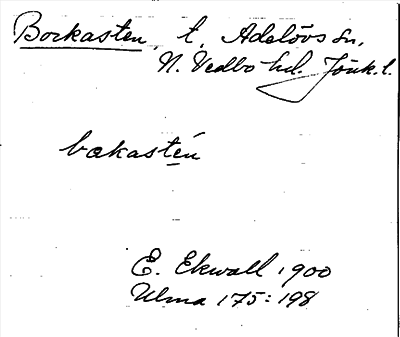 Borkasten, t. Adelövs sn.
N. Vedbo hd. Jönk. l.
bɑkastén
E. Ekwall 1900
Ulma 175:198